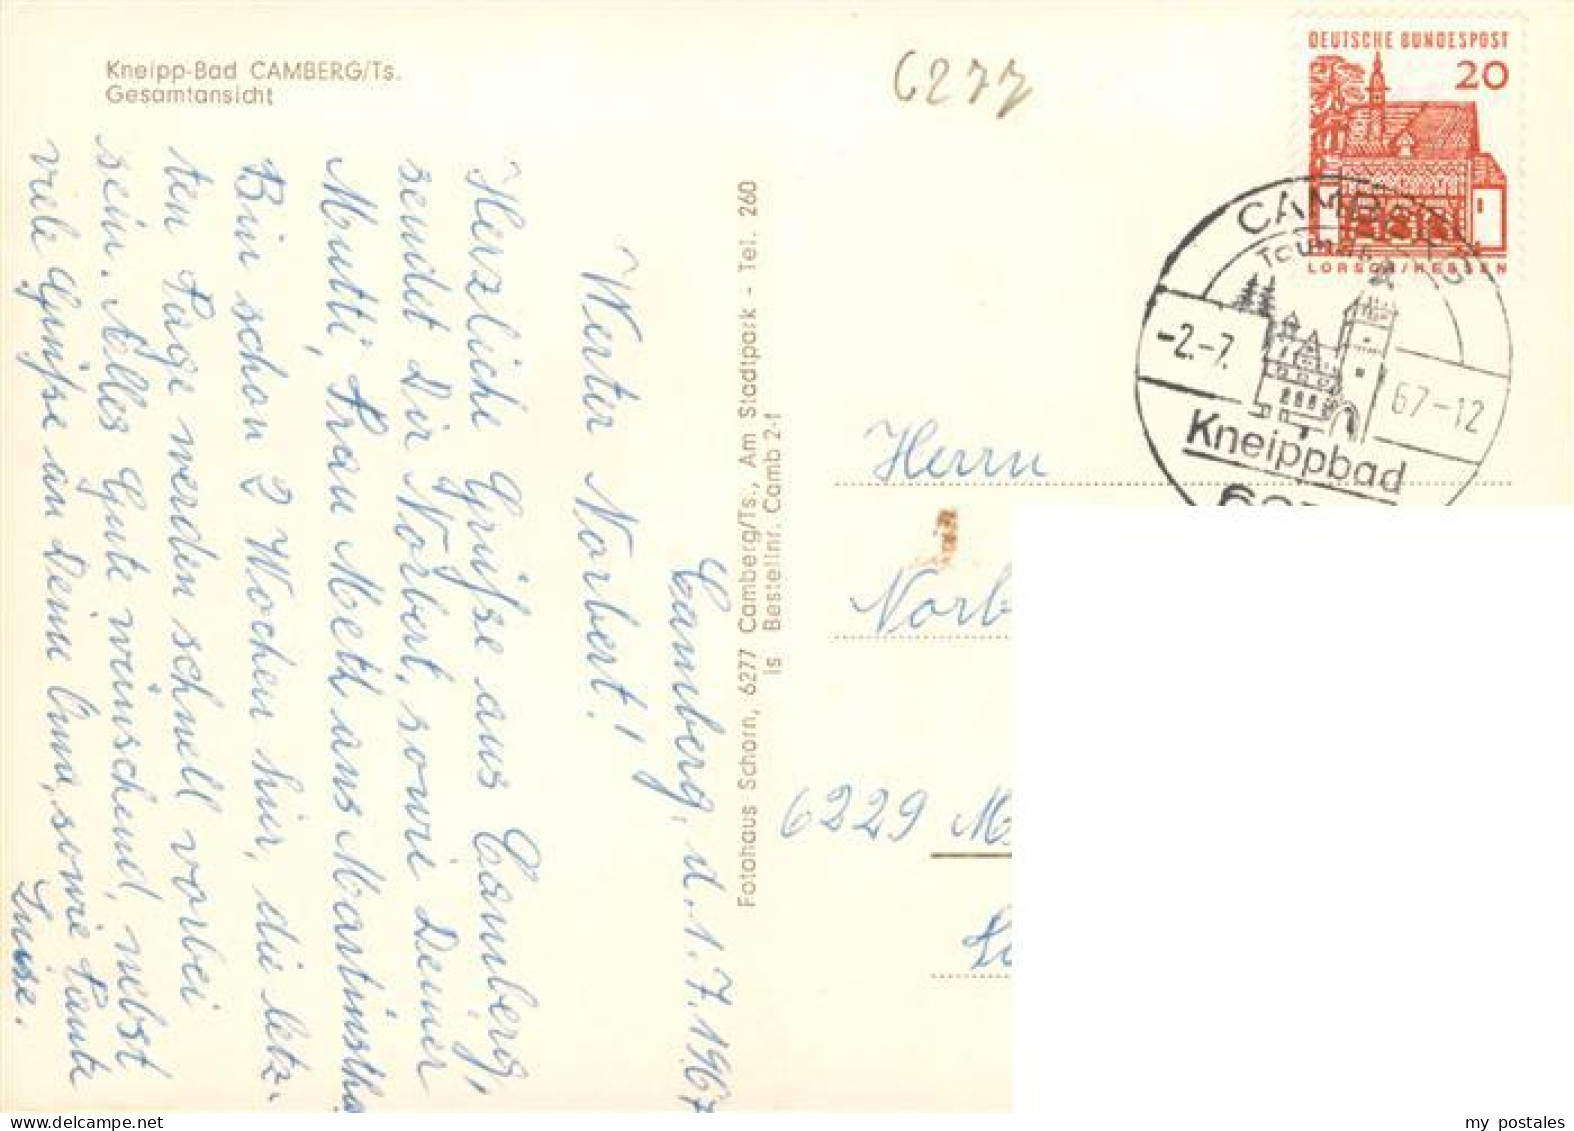 Kneipp-Bad CAMBERG/Ts.
Gesamtansicht
6277
DEUTSCHE BUNDESPOST
20
LORSCH/HESSEN
CAMBERG
Taunus
-2.-7. 67-12
Kneippbad
Camberg, d. 1.7.1967
Werter Norbert!
Herzliche Grüße aus Camberg,
sendet Dir Norbert, sowie Deiner
Mutti, Frau Meth aus Martinstha
Bin schon 2 Wochen hier, die letz-
ten Tage werden schnell vorbei
sein. Alles Gute wünschend, nebst
viele Grüße an Deine Oma, sowie Tante
Luise.
Fotohaus Schorn, 6277 Camberg/Ts., Am Stadtpark - Tel. 260
Is Bestellnr. Camb 2-f
Herrn
Norb
6229 M
delcampe.net
my_postales